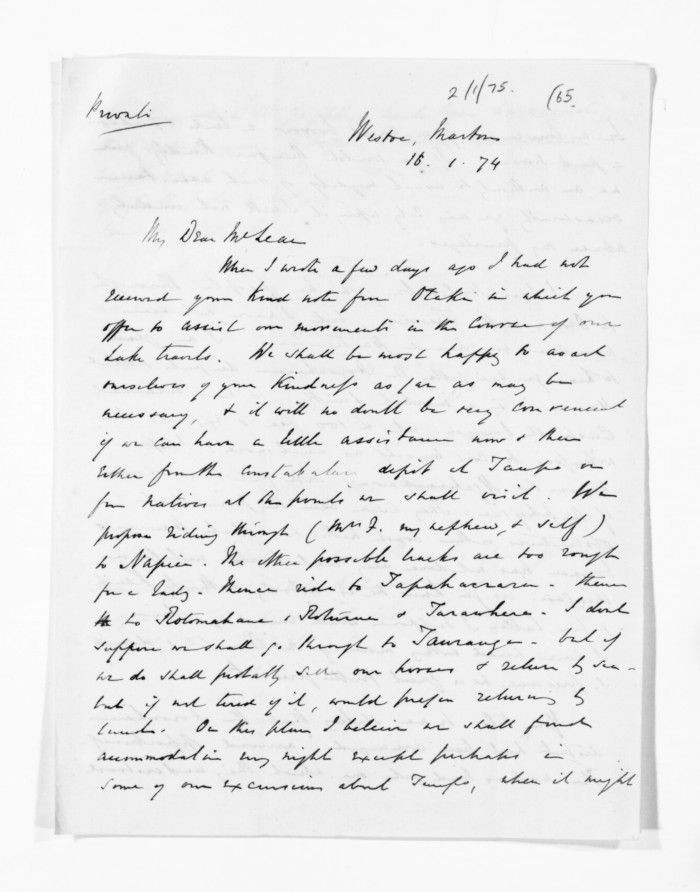 2/1/75. (65.
Private
Westoe, Marton
15. 1. 74
My Dear McLean
When I wrote a few days ago I had not
received your kind note from Otaki in which you
offer to assist our movements in the course of our
Lake travels. We shall be most happy to avail
ourselves of your kindness as far as may be
necessary, & it will no doubt be very convenient
if we can have a little assistance now & then
either from the constabulary depôt at Taupo or
from natives at the points we shall visit. We
propose riding through (Mrs F. my nephew, & self)
to Napier. The other possible tracks are too rough
for a lady. Thence ride to Tapuaeharuru. thence
to Rotomahana & Rotorua & Tarawhera. I dont
suppose we shall go through to Tauranga - but if
we do shall probably sell our horses & return by sea -
but if not tired of it, would prefer returning by
land. On this plan I believe we shall find
accommodation every night except perhaps in
some of our excursions about Taupo, when it might